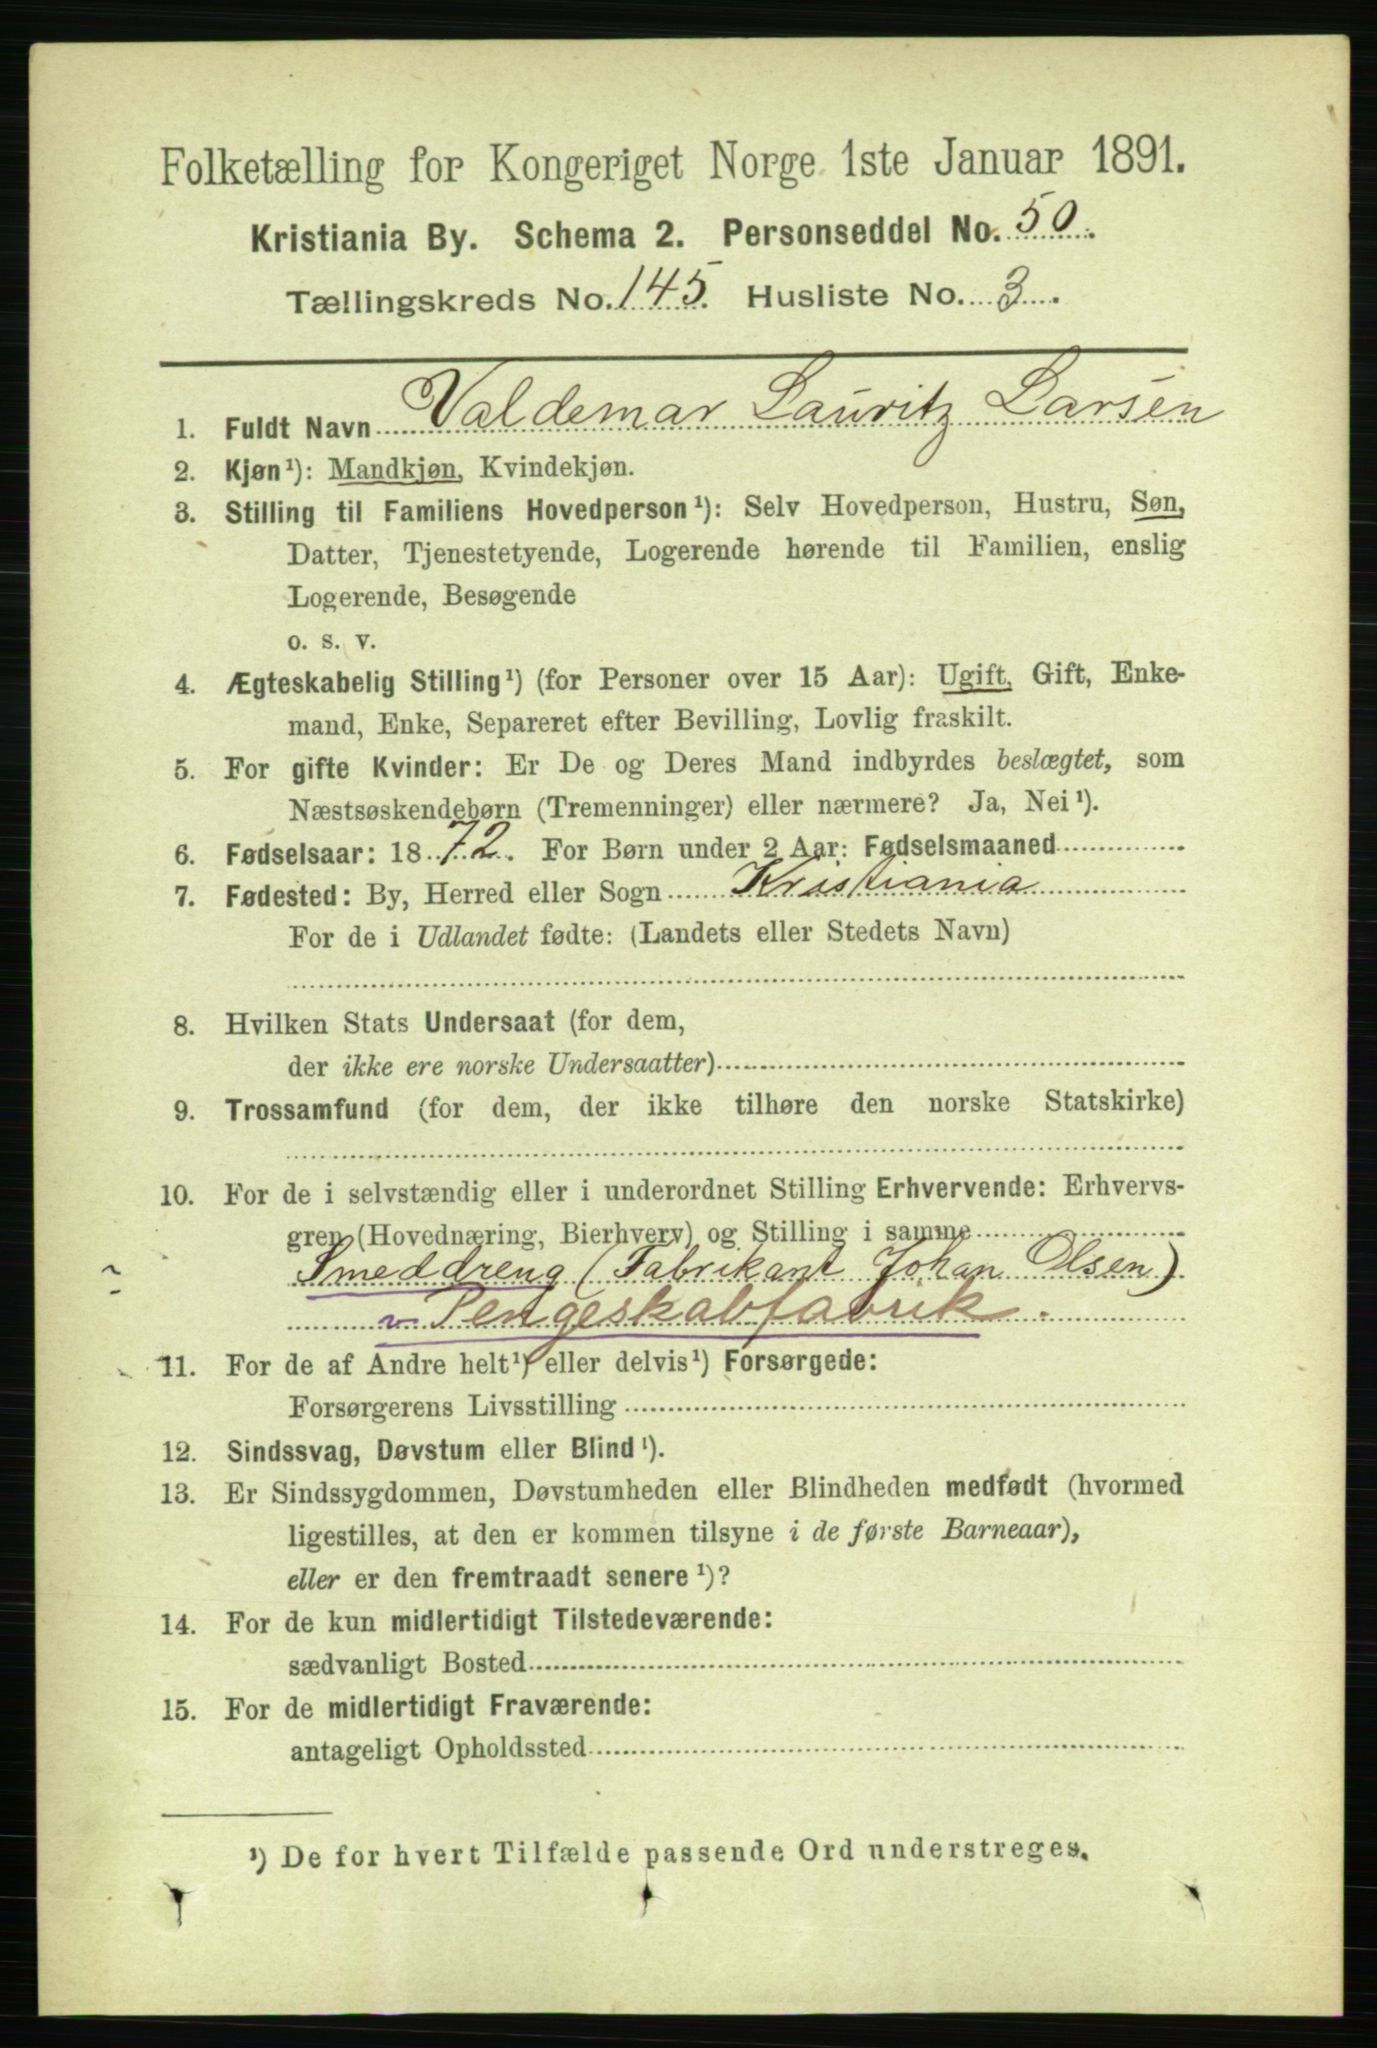 Folketælling for Kongeriget Norge 1ste Januar 1891.
Kristiania By. Schema 2. Personseddel No. 50.
Tællingskreds No. 145. Husliste No. 3.
1. Fuldt Navn Valdemar Lauritz Larsen
2. Kjøn¹): Mandkjøn, Kvindekjøn.
3. Stilling til Familiens Hovedperson¹): Selv Hovedperson, Hustru, Søn,
Datter, Tjenestetyende, Logerende hørende til Familien, enslig
Logerende, Besøgende
o. s. v.
4. Ægteskabelig Stilling¹) (for Personer over 15 Aar): Ugift, Gift, Enke-
mand, Enke, Separeret efter Bevilling, Lovlig fraskilt.
5. For gifte Kvinder: Er De og Deres Mand indbyrdes beslægtet, som
Næstsøskendebørn (Tremenninger) eller nærmere? Ja, Nei¹).
6. Fødselsaar: 1872. For Børn under 2 Aar: Fødselsmaaned
7. Fødested: By, Herred eller Sogn Kristiania
For de i Udlandet fødte: (Landets eller Stedets Navn)
8. Hvilken Stats Undersaat (for dem,
der ikke ere norske Undersaatter)
9. Trossamfund (for dem, der ikke tilhøre den norske Statskirke)
10. For de i selvstændig eller i underordnet Stilling Erhvervende: Erhvervs-
gren (Hovednæring, Bierhverv) og Stilling i samme
Smeddreng (Fabrikant Johan Olsen)
v Pengeskabfabrik.
11. For de af Andre helt¹) eller delvis¹) Forsørgede:
Forsørgerens Livsstilling
12. Sindssvag, Døvstum eller Blind¹).
13. Er Sindssygdommen, Døvstumheden eller Blindheden medfødt (hvormed
ligestilles, at den er kommen tilsyne i de første Barneaar),
eller er den fremtraadt senere¹)?
14. For de kun midlertidigt Tilstedeværende:
sædvanligt Bosted
15. For de midlertidigt Fraværende:
antageligt Opholdssted
¹) De for hvert Tilfælde passende Ord understreges.